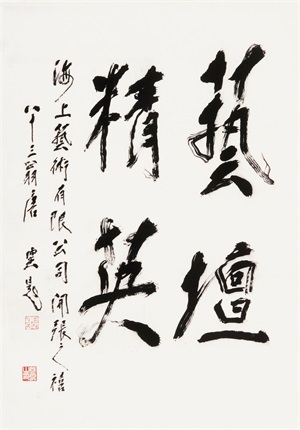 藝壇
精英
海上藝術有限公司開張之禧
八十三翁唐雲題